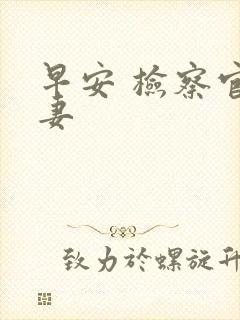 早安 檢察官
妻
致力於螺旋升